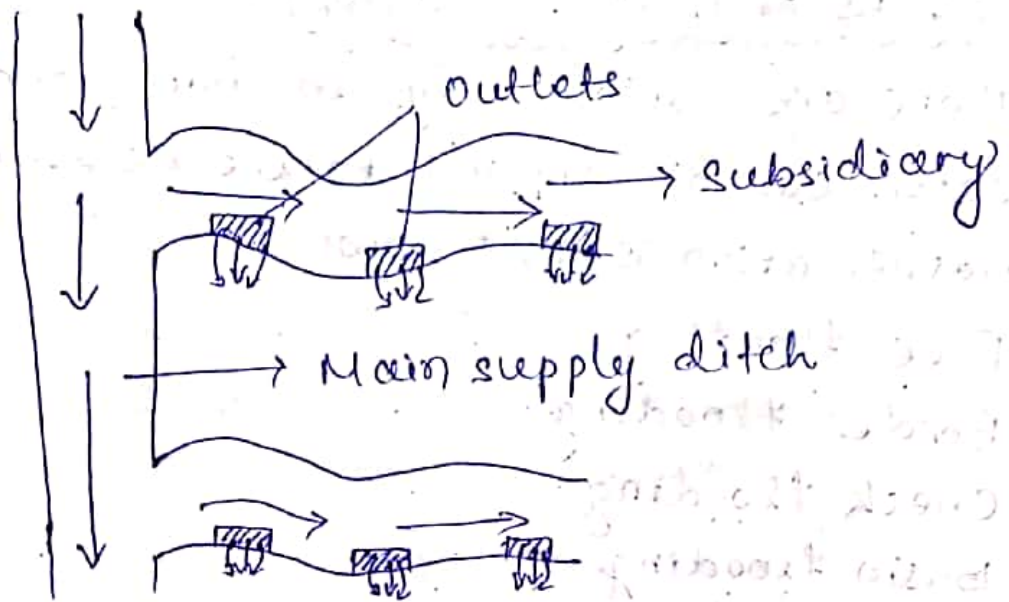 outlets
subsidiary
Main supply ditch